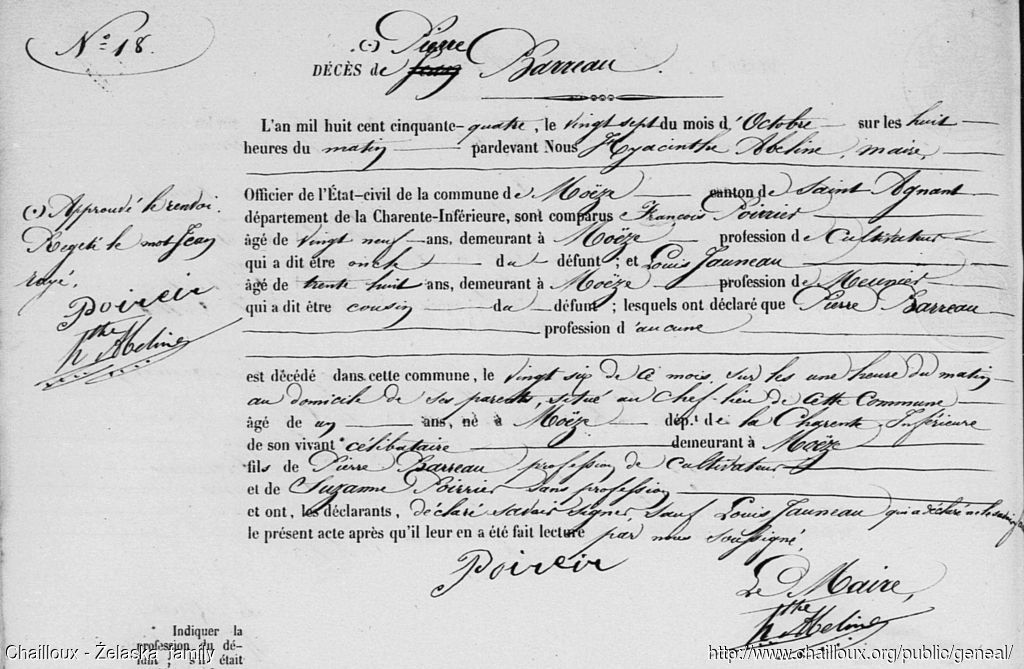 N° 18.
(-) Pierre
DÉCÈS de Jean Barreau.
L'an mil huit cent cinquante-quatre, le vingt sept du mois d'Octobre sur les huit
heures du matin pardevant Nous Hyacinthe Abeline, maire,
Officier de l'État-civil de la commune de Moëze canton de Saint Agnant
département de la Charente-Inférieure, sont comparus François Poirrier
âgé de vingt neuf ans, demeurant à Moëze profession de Cultivateur
qui a dit être oncle du défunt ; et Louis Jauneau
âgé de trente huit ans, demeurant à Moëze profession de Meunier
qui a dit être cousin du défunt ; lesquels ont déclaré que Pierre Barreau
profession d'aucune
est décédé dans cette commune, le vingt six de ce mois, sur les une heure du matin
au domicile de ses parents, situé au chef-lieu de cette Commune
âgé de un ans, né à Moëze dép.t de la Charente Inférieure
de son vivant * célibataire demeurant à Moëze
fils de Pierre Barreau profession de cultivateur
et de Suzanne Poirrier sans profession
et ont, les déclarants, déclaré savoir signer, sauf Louis Jauneau qui a déclaré ne le savoir,
le présent acte après qu'il leur en a été fait lecture par nous soussigné.
Poireir
Le Maire,
hthe Abeline
(-) Approuvé le renvoi.
Rejeté le mot Jean
rayé.
Poireir
hthe Abeline
* Indiquer la
profession du dé-
funt ; s'il était
Chailloux - Żelaska family
http://www.chailloux.org/public/geneal/